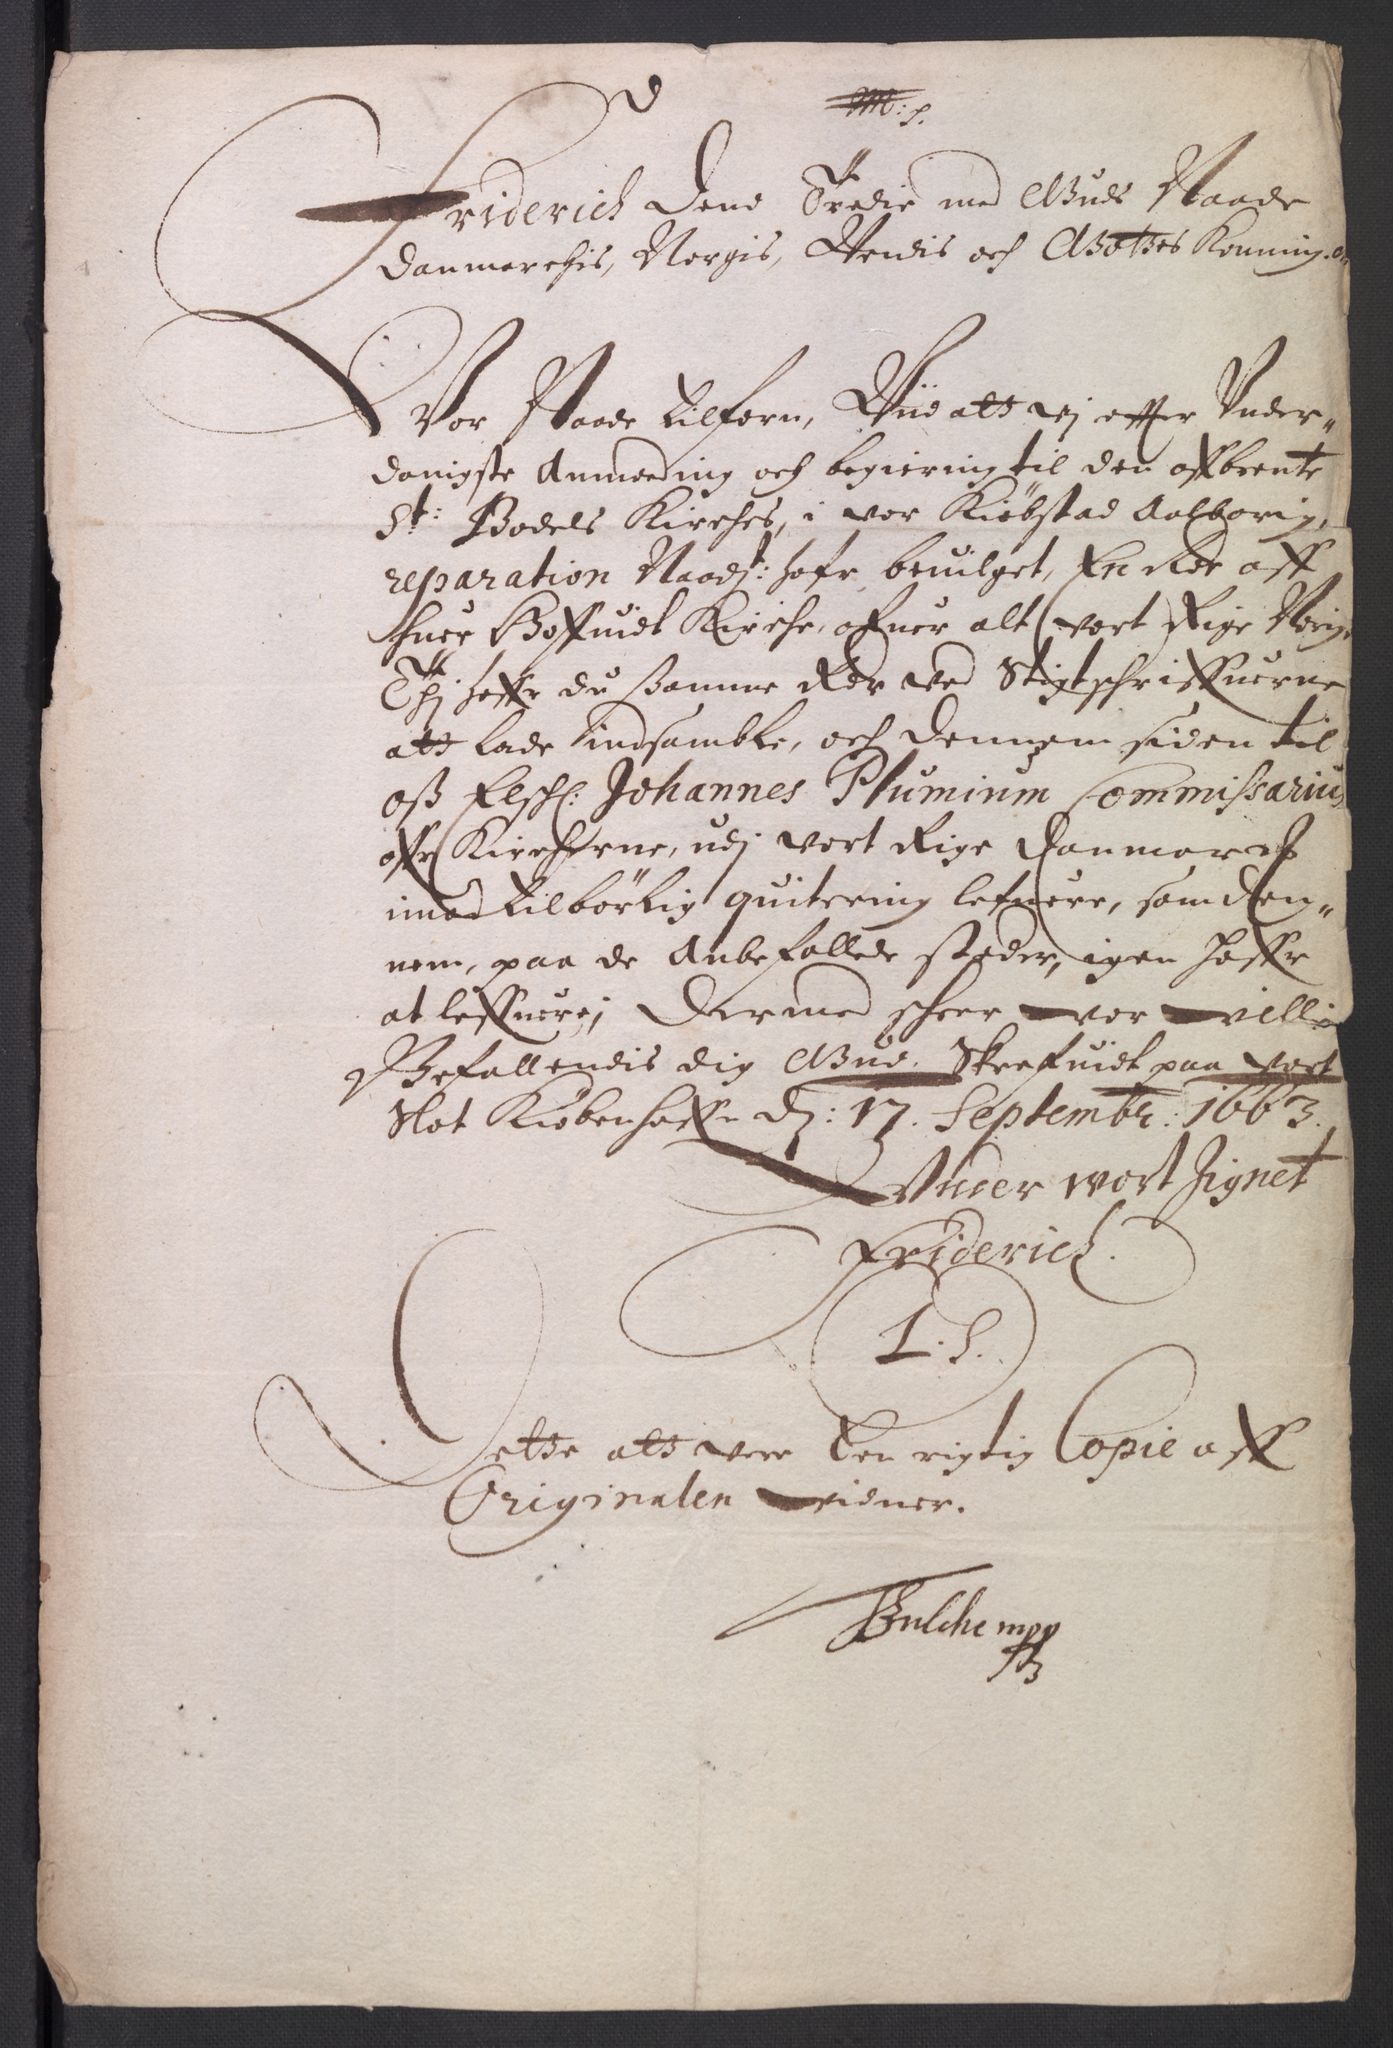 M: p.
Friderich dend Tredie med Guds Naade
Danmarchis, Norgis, Wendis och Gottes Konning. etc
Vor Naade tilforn, Wiid att vj effter Vnder-
danigste Anmoding och begiering til den affbrente
St: Bodels Kirches, i vor Kiöbstad Aalborig,
reparation Naadst: hafr beuilget, En Rdr aff
huer Hoffuidt Kirche, ofuer alt vort Rige Norige
Thj haffr du samme Rdr ved Stigtschriffuerne
att lade indsamble, och dennem siden til
oß Elschl: Johannes Pluminum Commissarius
offr Kircherne, udj vort Rige Danmarch
imod tilbörlig quitering lefuere, som den-
nem, paa de Anbefallede stæder, igen haffr
at leffuere; Dermed scheer vor villie
Befallendis dig Gud. Skrefuidt paa vort
Slot Kiøbenhaffn d: 17. Septembr: 1663.
Vnder wort Signet
Friderich.
L. S.
Dette att vere Een rigtig Copie aff
Originalen vidner.